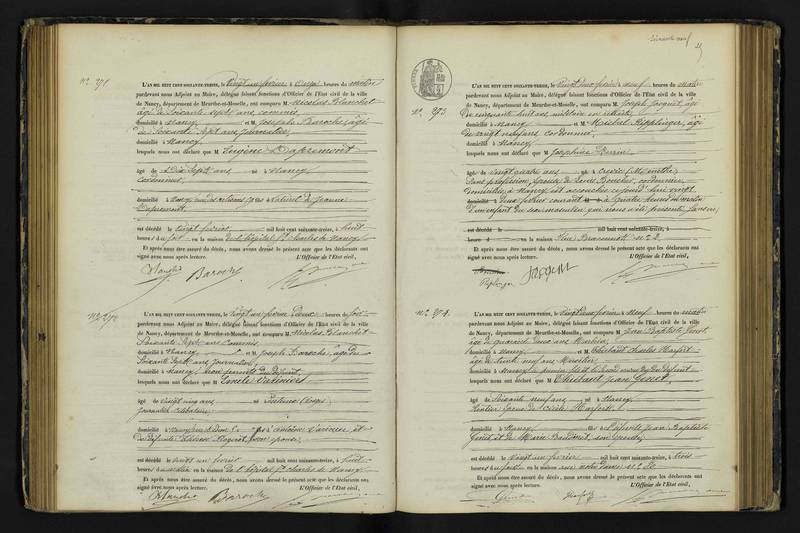 nº 271
L'AN MIL HUIT CENT SOIXANTE-TREIZE, le vingt un février à onze heures du matin
pardevant nous Adjoint au Maire, délégué faisant fonctions d'Officier de l'Etat civil de la ville
de Nancy, département de Meurthe-et-Moselle, ont comparu M. Nicolas Blanchet
âgé de Soixante sept ans commis
domicilié à Nancy et M. Joseph Baroche, âgé
de Soixante Sept ans journalier
domicilié à Nancy
lesquels nous ont déclaré que M Eugène Dapremont
âgé de Dix Sept ans né à Nancy
cordonnier
domicilié à Nancy naturel de Jeanne
Dapremont
est décédé le vingt février mil huit cent soixante-treize, à huit
heures du soir en la maison de l'hôpital St Charles de Nancy
Et après nous être assuré du décès, nous avons dressé le présent acte que les déclarants ont
signé avec nous après lecture. L'Officier de l'Etat civil,
Blanchet Baroche
nº 272
L'AN MIL HUIT CENT SOIXANTE-TREIZE, le vingt un février heures du soir
pardevant nous Adjoint au Maire, délégué faisant fonctions d'Officier de l'Etat civil de la ville
de Nancy, département de Meurthe-et-Moselle, ont comparu M. Nicolas Blanchet
Soixante Sept ans commis
domicilié à Nancy et M Joseph Baroche, âgé de
Soixante Sept ans journalier
domicilié à Nancy non parents du défunt
lesquels nous ont déclaré que M Emile
âgé de vingt cinq ans né à (Vosges)
journalier célibataire
domicilié à Nancy fils d'Antoine et
de défunte son épouse
est décédé le vingt un février mil huit cent soixante-treize, à huit
heures du matin en la maison de l'hôpital St Charles de Nancy
Et après nous être assuré du décès, nous avons dressé le présent acte que les déclarants ont
signé avec nous après lecture. L'Officier de l'Etat civil,
Blanchet Baroche
nº 273
L'AN MIL HUIT CENT SOIXANTE-TREIZE, le vingt deux février à neuf heures du matin
pardevant nous Adjoint au Maire, délégué faisant fonctions d'Officier de l'Etat civil de la ville
de Nancy, département de Meurthe-et-Moselle, ont comparu M. Joseph Jacquot, âgé
de cinquante huit ans militaire en retraite
domicilié à Nancy et M. Michel Ripplinger, âgé
de vingt neuf ans cordonnier
domicilié à Nancy
lesquels nous ont déclaré que M Joséphine
âgée de vingt quatre ans née à Crévic (Meurthe)
Sans profession, épouse de Louis cordonnier
domiciliée à Nancy est accouchée cejourd'hui vingt
deux février courant à quatre heures du matin
d'un enfant du sexe masculin qui nous a été présenté sans vie
est décédé le mil huit cent soixante-treize, à
heures en la maison rue Braconnot nº 2
Et après nous être assuré du décès, nous avons dressé le présent acte que les déclarants ont
signé avec nous après lecture. L'Officier de l'Etat civil,
Ripplinger
nº 274
L'AN MIL HUIT CENT SOIXANTE-TREIZE, le vingt deux février à neuf heures du matin
pardevant nous Adjoint au Maire, délégué faisant fonctions d'Officier de l'Etat civil de la ville
de Nancy, département de Meurthe-et-Moselle, ont comparu M. Jean Baptiste Genet
âgé de quarante deux ans
domicilié à Nancy et M Thiébaut Charles Harfort
âgé de trente neuf ans
domicilié à Nancy le premier fils et le second du défunt
lesquels nous ont déclaré que M Thiébaut Jean Genet
âgé de Soixante neuf ans né à Nancy
Rentier époux de Cécile Harfort
domicilié à Nancy fils de défunts Jean Baptiste
Genet et de Marie son épouse
est décédé le vingt un février mil huit cent soixante-treize, à trois
heures du soir en la maison rue Notre Dame nº
Et après nous être assuré du décès, nous avons dressé le présent acte que les déclarants ont
signé avec nous après lecture. L'Officier de l'Etat civil,
Genet Harfort